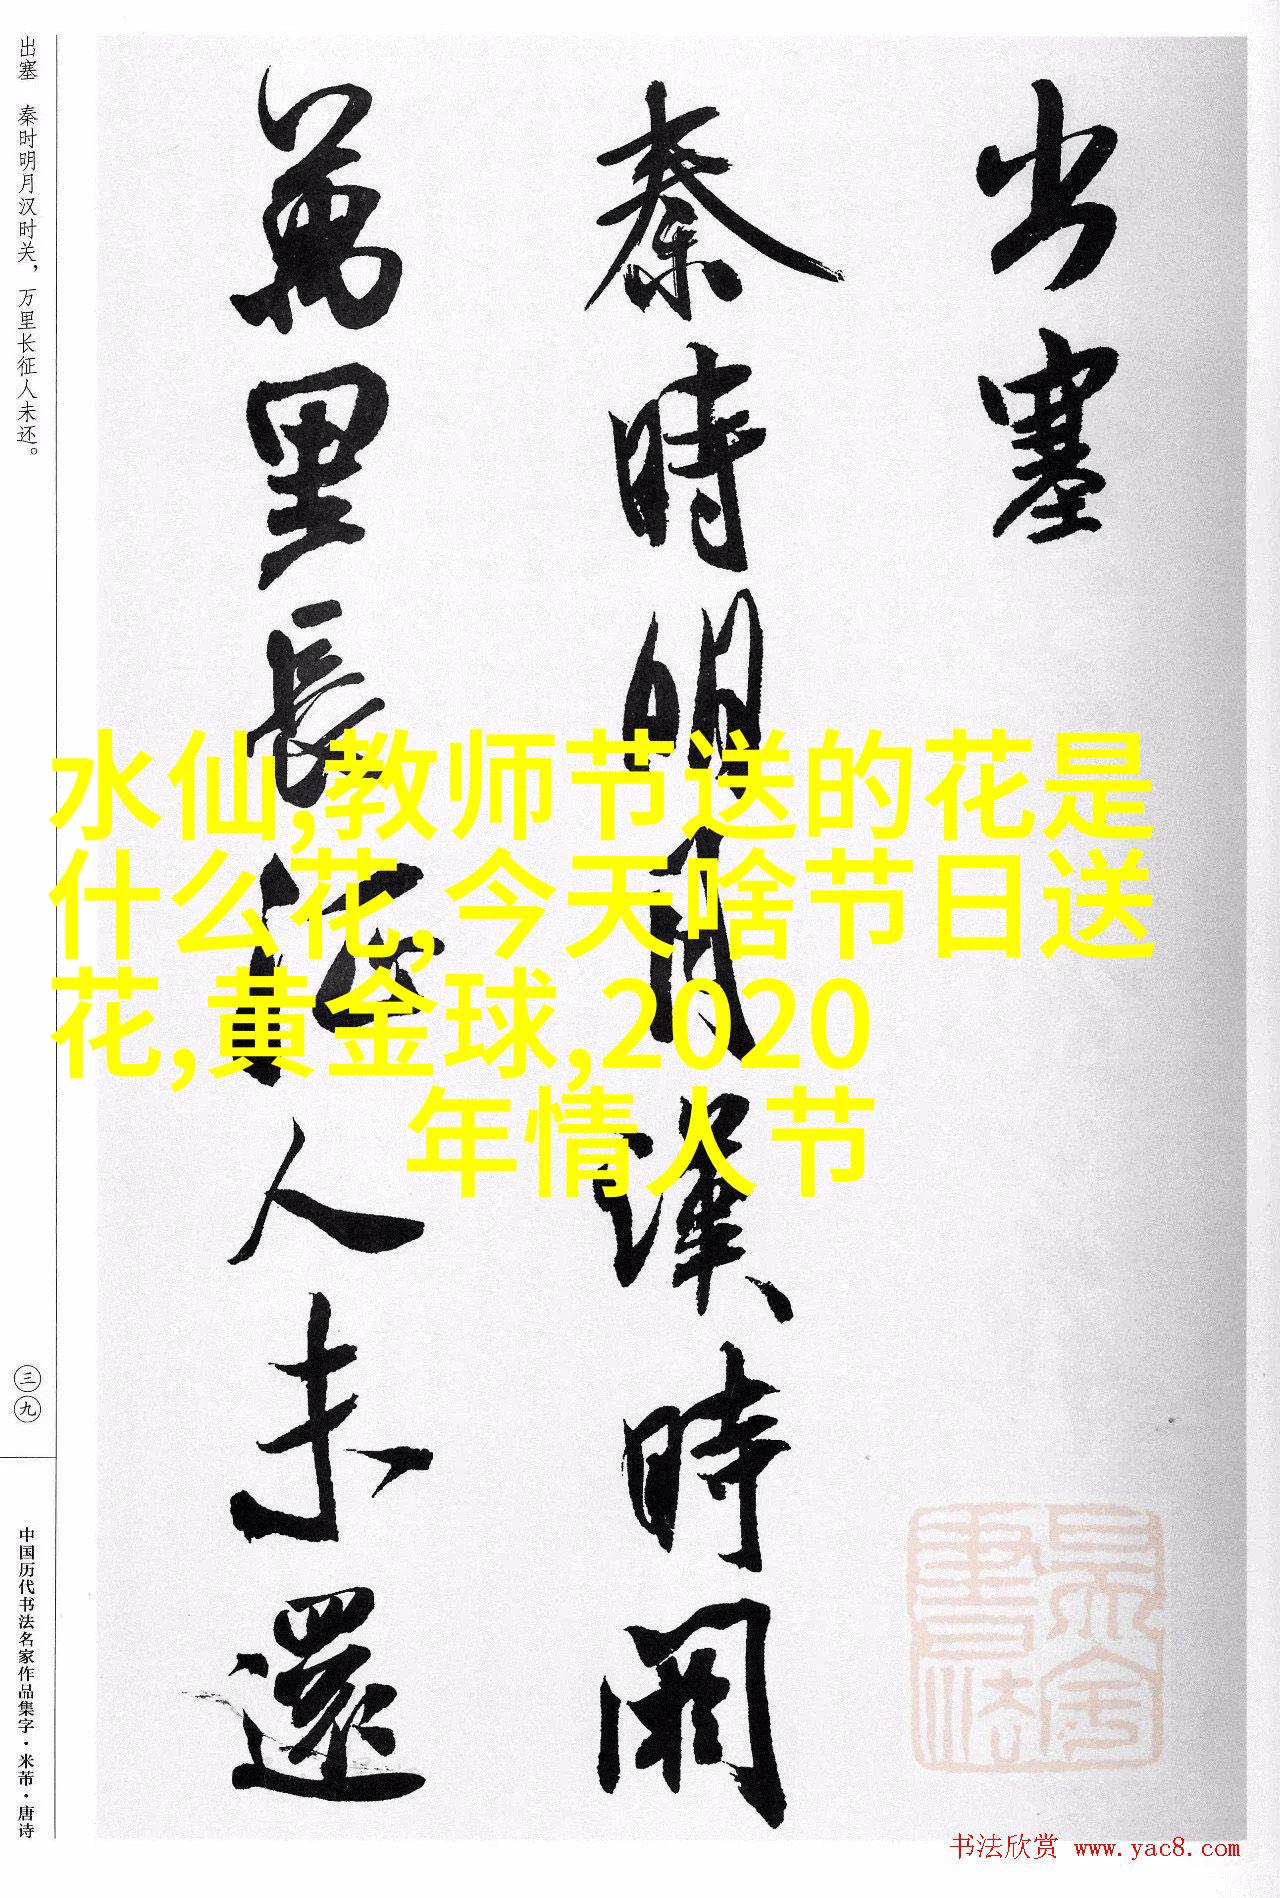 出塞
秦時明月漢時関
萬里長征人未還
出塞 秦时明月汉时关，万里长征人未还。
三九
中国历代书法名家作品集字·米芾·唐诗
水仙,教师节送的花是
什么花,今天啥节日送
花,黄金球,2020
年情人节
书法欣赏 www.yac8.com